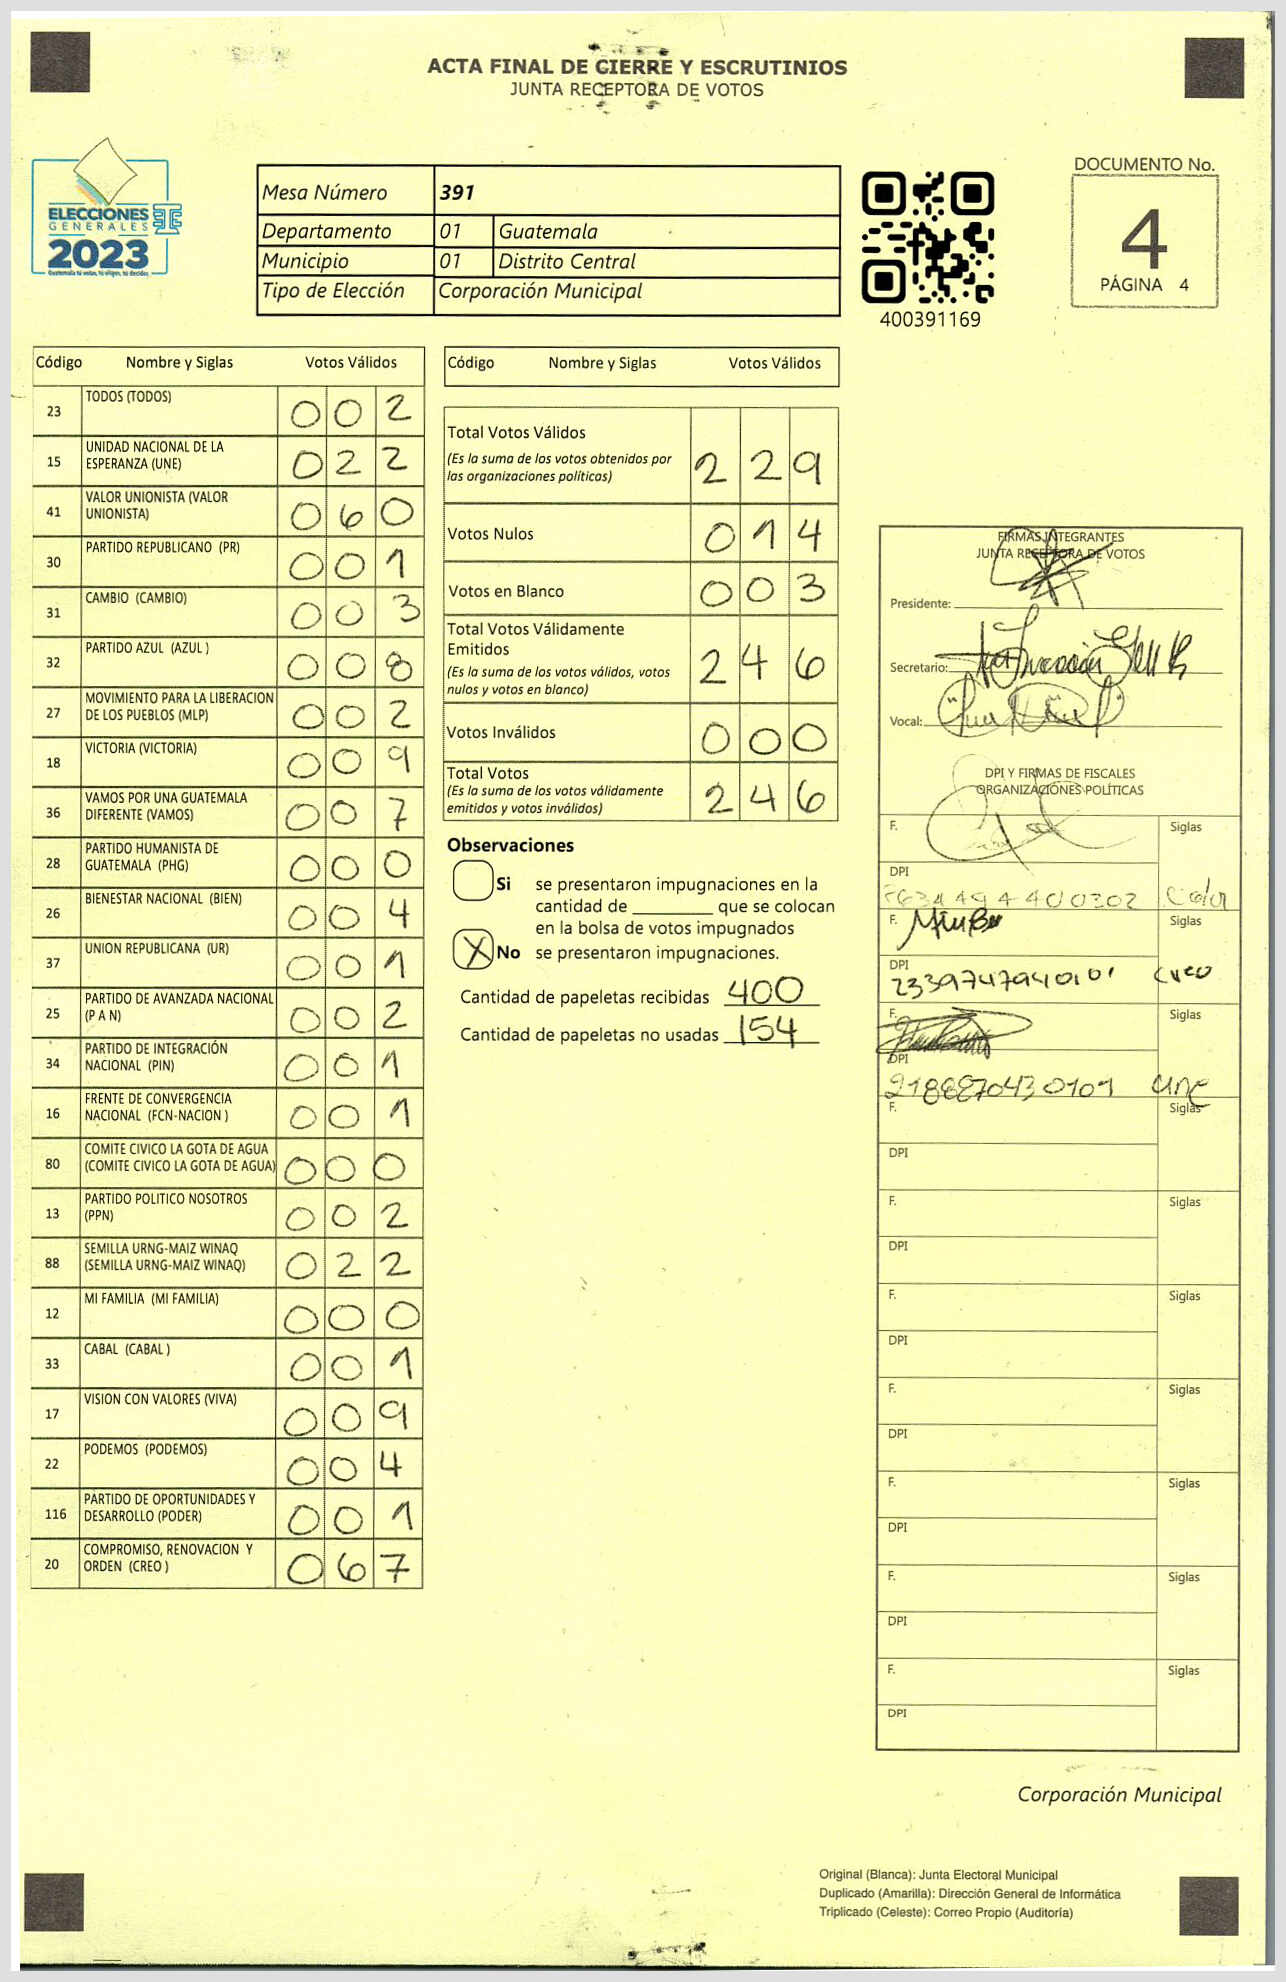 ACTA FINAL DE CIERRE Y ESCRUTINIOS
JUNTA RECEPTORA DE VOTOS
ELECCIONES
GENERALES
2023
Guatemala tú votas, tú eliges, tú decides
Mesa Número 391
Departamento 01 Guatemala
Municipio 01 Distrito Central
Tipo de Elección Corporación Municipal
400391169
DOCUMENTO No.
4
PÁGINA 4
Código Nombre y Siglas Votos Válidos
23 TODOS (TODOS) 0 0 2
15 UNIDAD NACIONAL DE LA ESPERANZA (UNE) 0 2 2
41 VALOR UNIONISTA (VALOR UNIONISTA) 0 6 0
30 PARTIDO REPUBLICANO (PR) 0 0 1
31 CAMBIO (CAMBIO) 0 0 3
32 PARTIDO AZUL (AZUL ) 0 0 8
27 MOVIMIENTO PARA LA LIBERACION DE LOS PUEBLOS (MLP) 0 0 2
18 VICTORIA (VICTORIA) 0 0 9
36 VAMOS POR UNA GUATEMALA DIFERENTE (VAMOS) 0 0 7
28 PARTIDO HUMANISTA DE GUATEMALA (PHG) 0 0 0
26 BIENESTAR NACIONAL (BIEN) 0 0 4
37 UNION REPUBLICANA (UR) 0 0 1
25 PARTIDO DE AVANZADA NACIONAL (P A N) 0 0 2
34 PARTIDO DE INTEGRACIÓN NACIONAL (PIN) 0 0 1
16 FRENTE DE CONVERGENCIA NACIONAL (FCN-NACION ) 0 0 1
80 COMITE CIVICO LA GOTA DE AGUA (COMITE CIVICO LA GOTA DE AGUA) 0 0 0
13 PARTIDO POLITICO NOSOTROS (PPN) 0 0 2
88 SEMILLA URNG-MAIZ WINAQ (SEMILLA URNG-MAIZ WINAQ) 0 2 2
12 MI FAMILIA (MI FAMILIA) 0 0 0
33 CABAL (CABAL ) 0 0 1
17 VISION CON VALORES (VIVA) 0 0 9
22 PODEMOS (PODEMOS) 0 0 4
116 PARTIDO DE OPORTUNIDADES Y DESARROLLO (PODER) 0 0 1
20 COMPROMISO, RENOVACION Y ORDEN (CREO ) 0 6 7
Código Nombre y Siglas Votos Válidos
Total Votos Válidos
(Es la suma de los votos obtenidos por las organizaciones políticas) 2 2 9
Votos Nulos 0 1 4
Votos en Blanco 0 0 3
Total Votos Válidamente Emitidos
(Es la suma de los votos válidos, votos nulos y votos en blanco) 2 4 6
Votos Inválidos 0 0 0
Total Votos
(Es la suma de los votos válidamente emitidos y votos inválidos) 2 4 6
Observaciones
Si se presentaron impugnaciones en la
cantidad de ________ que se colocan
en la bolsa de votos impugnados
X No se presentaron impugnaciones.
Cantidad de papeletas recibidas 400
Cantidad de papeletas no usadas 154
FIRMAS INTEGRANTES
JUNTA RECEPTORA DE VOTOS
Presidente:
Secretario:
Vocal:
DPI Y FIRMAS DE FISCALES
ORGANIZACIONES POLÍTICAS
F. Siglas
DPI
F. Siglas
DPI
2339747940101 creo
F. Siglas
DPI
2188870430101 une
F. Siglas
DPI
F. Siglas
DPI
F. Siglas
DPI
F. Siglas
DPI
F. Siglas
DPI
F. Siglas
DPI
F. Siglas
DPI
Corporación Municipal
Original (Blanca): Junta Electoral Municipal
Duplicado (Amarilla): Dirección General de Informática
Triplicado (Celeste): Correo Propio (Auditoría)